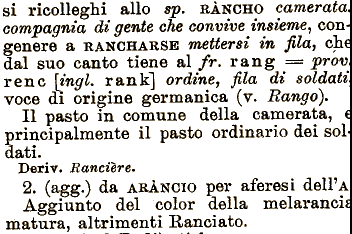 si ricolleghi allo sp. RÀNCHO camerata,
compagnia di gente che convive insieme, con-
genere a RANCHARSE mettersi in fila, che
dal suo canto tiene al fr. rang = prov.
renc [ingl. rank] ordine, fila di soldati,
voce di origine germanica (v. Rango).
Il pasto in comune della camerata, e
principalmente il pasto ordinario dei sol-
dati.
Deriv. Rancière.
2. (agg.) da ARÀNCIO per aferesi dell'A
Aggiunto del color della melarancia
matura, altrimenti Ranciato.